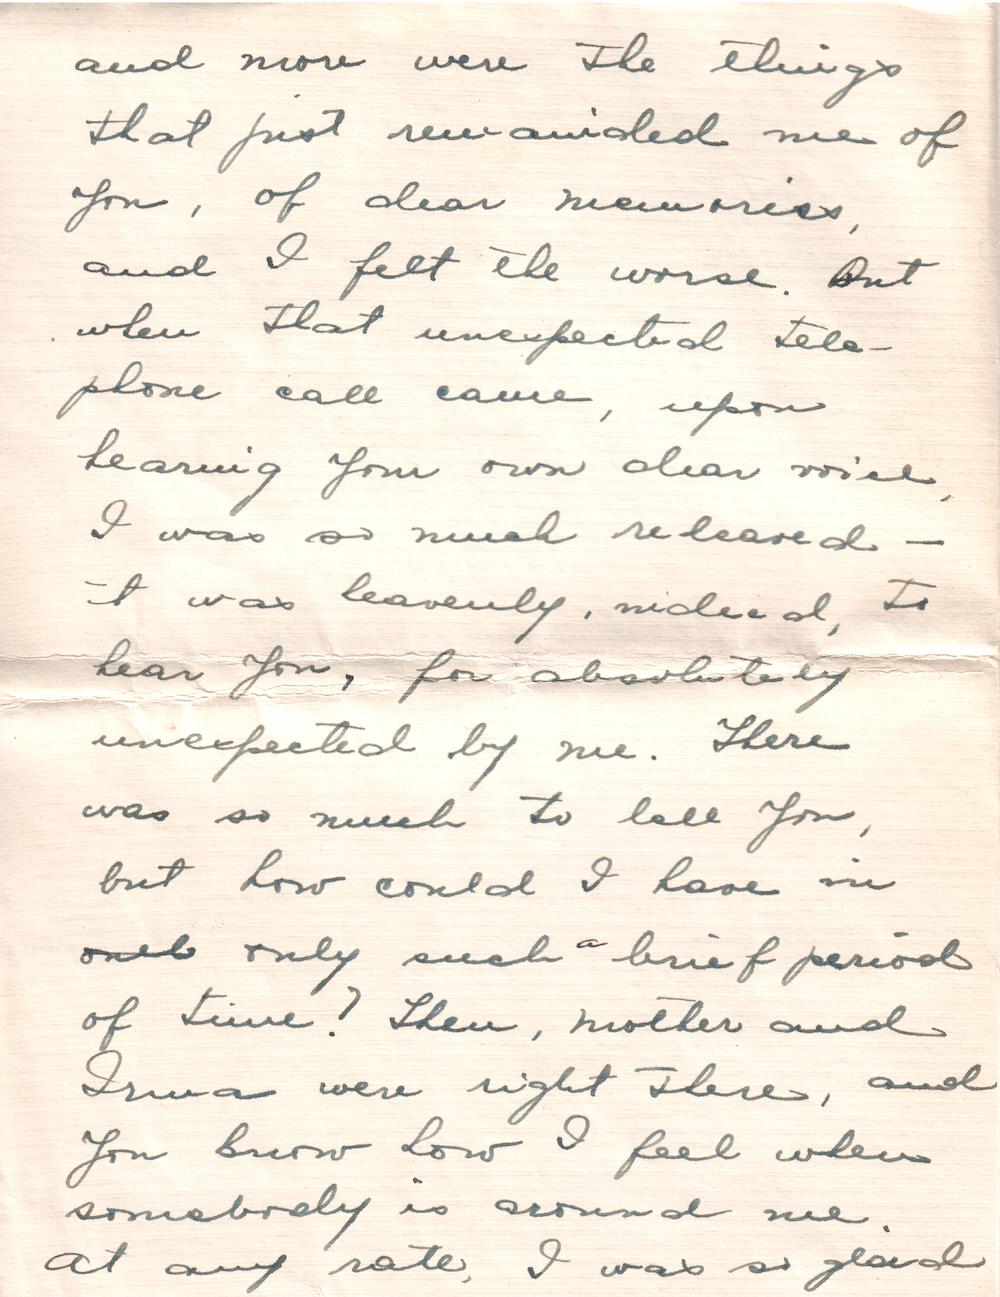 and more were the things
that just remainded me of
You, of dear memories,
and I felt the worse. But
when that unexpected tele-
phone call came, upon
hearing Your own dear voice,
I was so much releaved —
it was heavenly, indeed, to
hear You, for absolutely
unexpected by me. There
was so much to tell You,
but how could I have in
only such a brief period
of time? Then, mother and
Irma were right there, and
You know how I feel when
somebody is around me.
At any rate, I was so glad